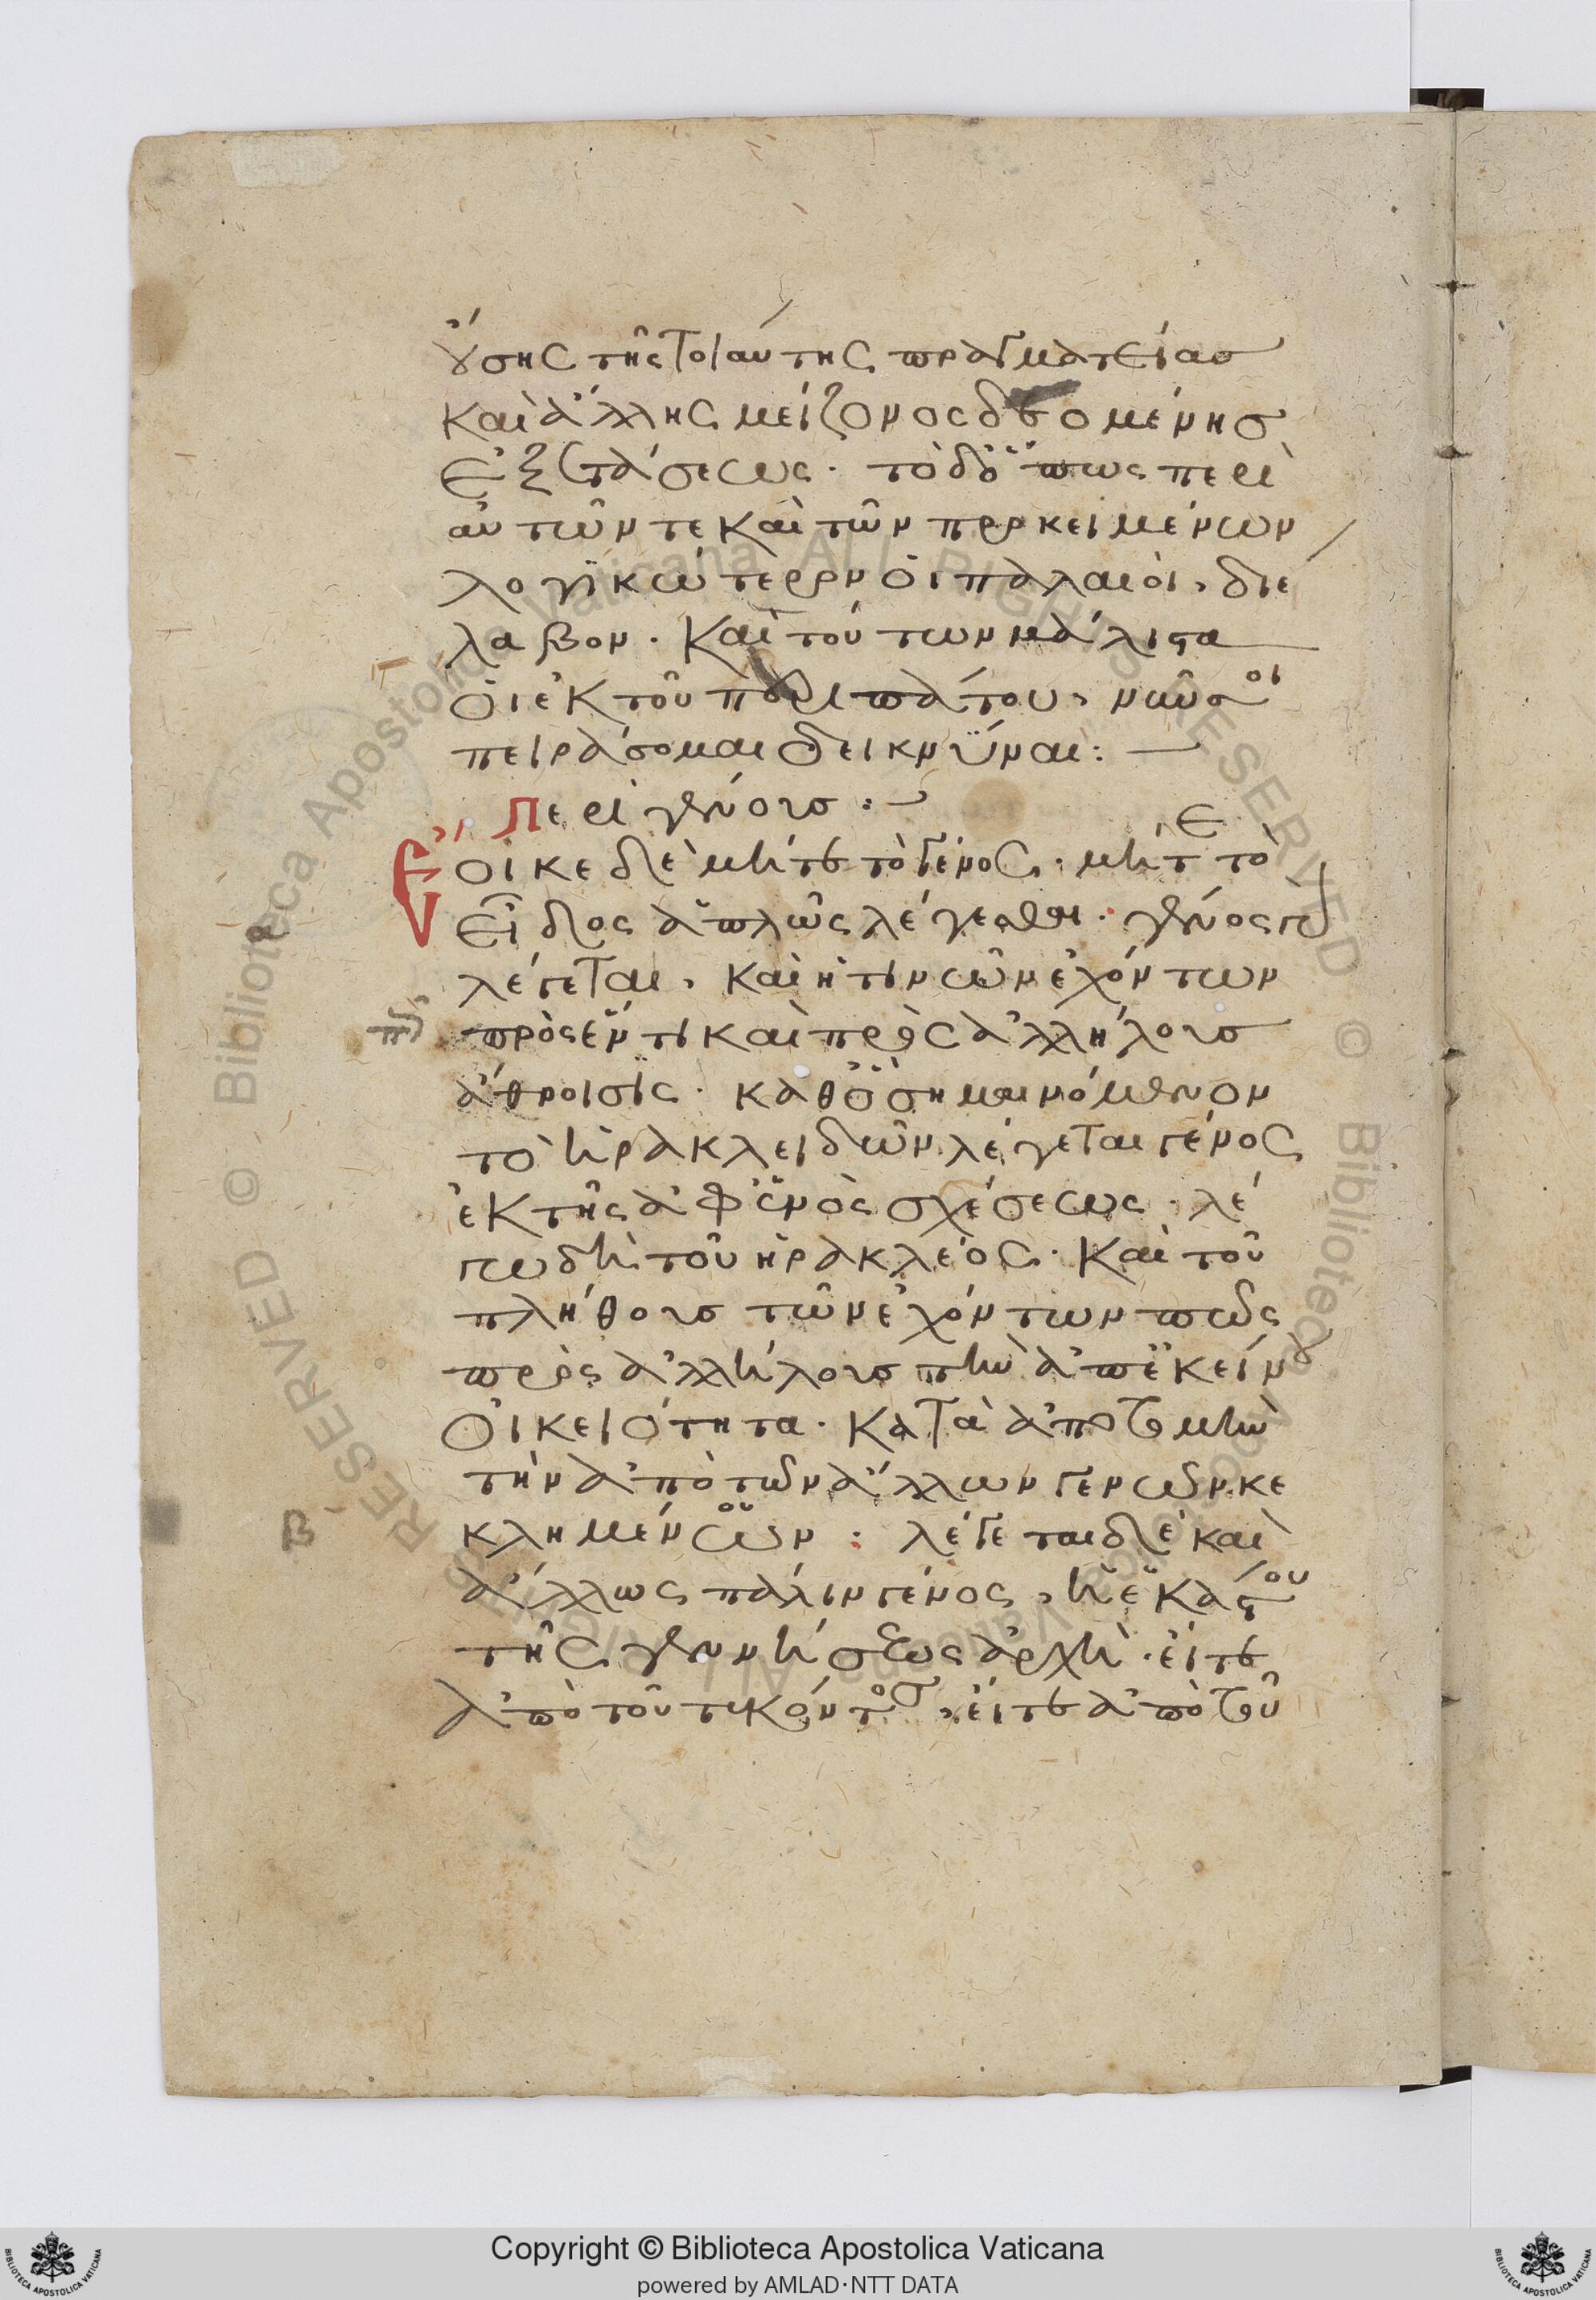 ούσης τῆς τοιαύτης πραγματείας
καὶ ἄλλης μείζονος δεομένης
ἐξετάσεως· τὸ δ' ὅπως περὶ
αὐτῶν τε καὶ τῶν προκειμένων
λογικώτερον οἱ παλαιοὶ, διέ
λαβον. καὶ τούτων μάλιστα
οἱ ἐκ τοῦ περιπάτου, νῦν σοι
πειράσομαι δεικνύναι:
Περὶ γένους:
Ἔοικε δὲ μήτε τὸ γένος· μήτε τὸ
εἶδος ἁπλῶς λέγεσθαι· γένος γὰρ
λέγεται, καὶ ἡ τινῶν ἐχόντων
πρὸς ἕν τι καὶ πρὸς ἀλλήλους
ἄθροισις· καθ' ὃ σημαινόμενον
τὸ ἡρακλειδῶν λέγεται γένος
ἐκ τῆς ἀφ' ἑνὸς σχέσεως· λέ
γω δὴ τοῦ ἡρακλέος· καὶ τοῦ
πλήθους τῶν ἐχόντων πως
πρὸς ἀλλήλους τὴν ἀπ' ἐκείνου
οἰκειότητα· κατὰ ἀποτομὴν
τὴν ἀπὸ τῶν ἄλλων γενῶν κε
β κλημένων: λέγεται δὲ καὶ
ἄλλως πάλιν γένος, ἡ ἑκάστου
τῆς γεννήσεως ἀρχὴ· εἴτε
ἀπὸ τοῦ τεκόντος, εἴτε ἀπὸ τοῦ
Copyright © Biblioteca Apostolica Vaticana
powered by AMLAD·NTT DATA